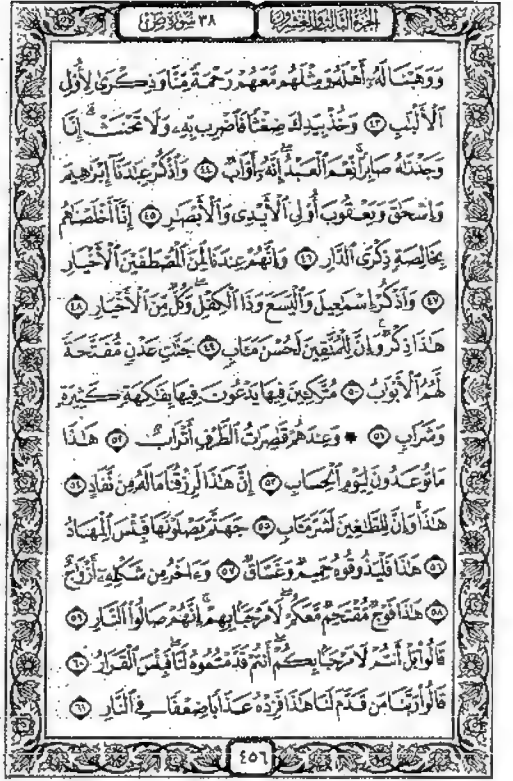 الجزء الثالث والعشرون
٣٨ سورة ص
وَوَهَبْنَا لَهُۥٓ أَهْلَهُۥ وَمِثْلَهُم مَّعَهُمْ رَحْمَةً مِّنَّا وَذِكْرَىٰ لِأُو۟لِى
ٱلْأَلْبَٰبِ ٤٣ وَخُذْ بِيَدِكَ ضِغْثًا فَٱضْرِب بِّهِۦ وَلَا تَحْنَثْ ۗ إِنَّا
وَجَدْنَٰهُ صَابِرًا ۚ نِّعْمَ ٱلْعَبْدُ ۖ إِنَّهُۥٓ أَوَّابٌ ٤٤ وَٱذْكُرْ عِبَٰدَنَآ إِبْرَٰهِيمَ
وَإِسْحَٰقَ وَيَعْقُوبَ أُو۟لِى ٱلْأَيْدِى وَٱلْأَبْصَٰرِ ٤٥ إِنَّآ أَخْلَصْنَٰهُم
بِخَالِصَةٍ ذِكْرَى ٱلدَّارِ ٤٦ وَإِنَّهُمْ عِندَنَا لَمِنَ ٱلْمُصْطَفَيْنَ ٱلْأَخْيَارِ
٤٧ وَٱذْكُرْ إِسْمَٰعِيلَ وَٱلْيَسَعَ وَذَا ٱلْكِفْلِ ۖ وَكُلٌّ مِّنَ ٱلْأَخْيَارِ ٤٨
هَٰذَا ذِكْرٌ ۚ وَإِنَّ لِلْمُتَّقِينَ لَحُسْنَ مَـَٔابٍ ٤٩ جَنَّٰتِ عَدْنٍ مُّفَتَّحَةً
لَّهُمُ ٱلْأَبْوَٰبُ ٥٠ مُتَّكِـِٔينَ فِيهَا يَدْعُونَ فِيهَا بِفَٰكِهَةٍ كَثِيرَةٍ
وَشَرَابٍ ٥١ ۞ وَعِندَهُمْ قَٰصِرَٰتُ ٱلطَّرْفِ أَتْرَابٌ ٥٢ هَٰذَا
مَا تُوعَدُونَ لِيَوْمِ ٱلْحِسَابِ ٥٣ إِنَّ هَٰذَا لَرِزْقُنَا مَا لَهُۥ مِن نَّفَادٍ ٥٤
هَٰذَا ۚ وَإِنَّ لِلطَّٰغِينَ لَشَرَّ مَـَٔابٍ ٥٥ جَهَنَّمَ يَصْلَوْنَهَا فَبِئْسَ ٱلْمِهَادُ
٥٦ هَٰذَا فَلْيَذُوقُوهُ حَمِيمٌ وَغَسَّاقٌ ٥٧ وَءَاخَرُ مِن شَكْلِهِۦٓ أَزْوَٰجٌ
٥٨ هَٰذَا فَوْجٌ مُّقْتَحِمٌ مَّعَكُمْ ۖ لَا مَرْحَبًۢا بِهِمْ ۚ إِنَّهُمْ صَالُوا۟ ٱلنَّارِ ٥٩
قَالُوا۟ بَلْ أَنتُمْ لَا مَرْحَبًۢا بِكُمْ ۖ أَنتُمْ قَدَّمْتُمُوهُ لَنَا ۖ فَبِئْسَ ٱلْقَرَارُ ٦٠
قَالُوا۟ رَبَّنَا مَن قَدَّمَ لَنَا هَٰذَا فَزِدْهُ عَذَابًا ضِعْفًا فِى ٱلنَّارِ ٦١
٤٥٦